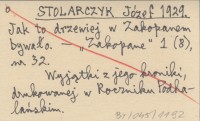 STOLARCZYK Józef 1929.
Jak to drzewiej w Zakopanem
bywało. — „Zakopane" 1 (8),
na 32.
Wyjątki z jego kroniki,
drukowanej w Roczniku Podha-
lańskim.